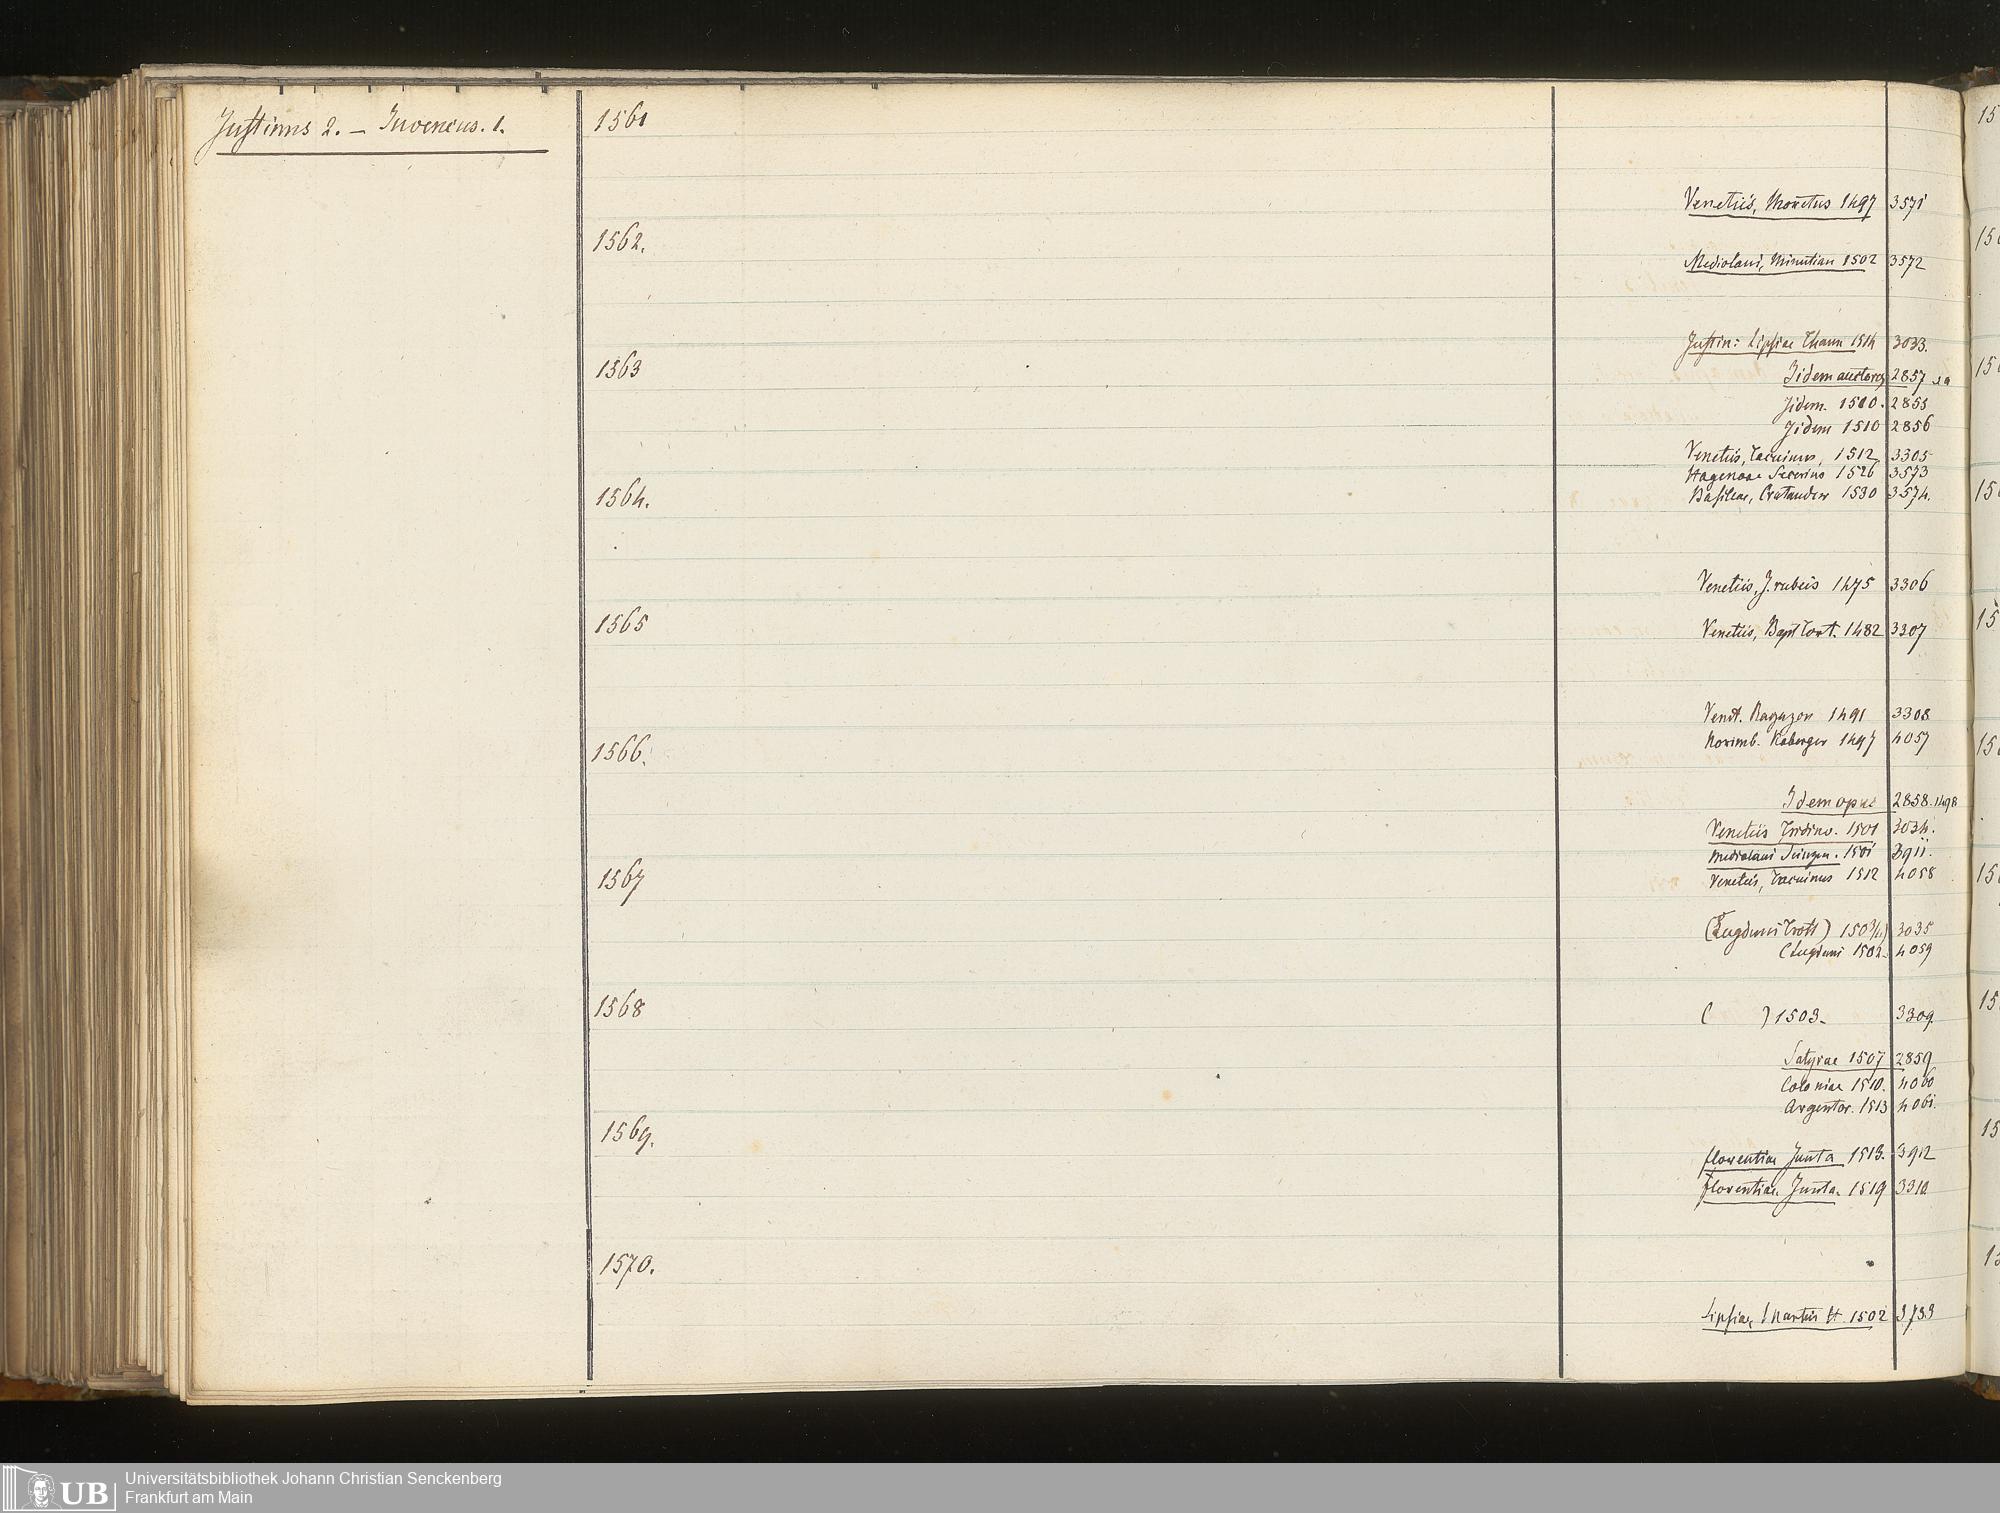 Justinus 2. – Juvencus. 1.
1561
Venetiis, Monetus 1497 3571
1562.
Mediolani, Minutian 1502 3572
Justin: Lipsiae Thann 1514 3033.
1563
Iidem auctores 2857
Iidem. 1510. 2855
Iidem 1510 2856
Venetiis, Tacuinus, 1512 3305
Hagenoae Secerius 1526 3573
1564.
Basileae, Cratander 1530 3574.
Venetiis, J. rubeis 1475 3306
1565
Venetiis, Bapt Tort. 1482 3307
Venet. Ragazon 1491 3308
1566.
Norimb. Koberger 1497 4057
Idem opus 2858. 1498
Venetiis Tridino. 1501 3034.
Mediolani 1501 3911.
1567
Venetiis, Tacuinus 1512 4058
(Lugduni Trott) 3035
(Lugduni 1502. 4059
1568
( ) 1503. 3309.
Satyrae 1507 2859
Coloniae 1510. 4060
Argentor. 1513 4061.
1569.
florentiae Junta 1513. 3912
florentiae Junta. 1519 3310.
1570.
Lipsiae, 1502 3733
UB
Universitätsbibliothek Johann Christian Senckenberg
Frankfurt am Main